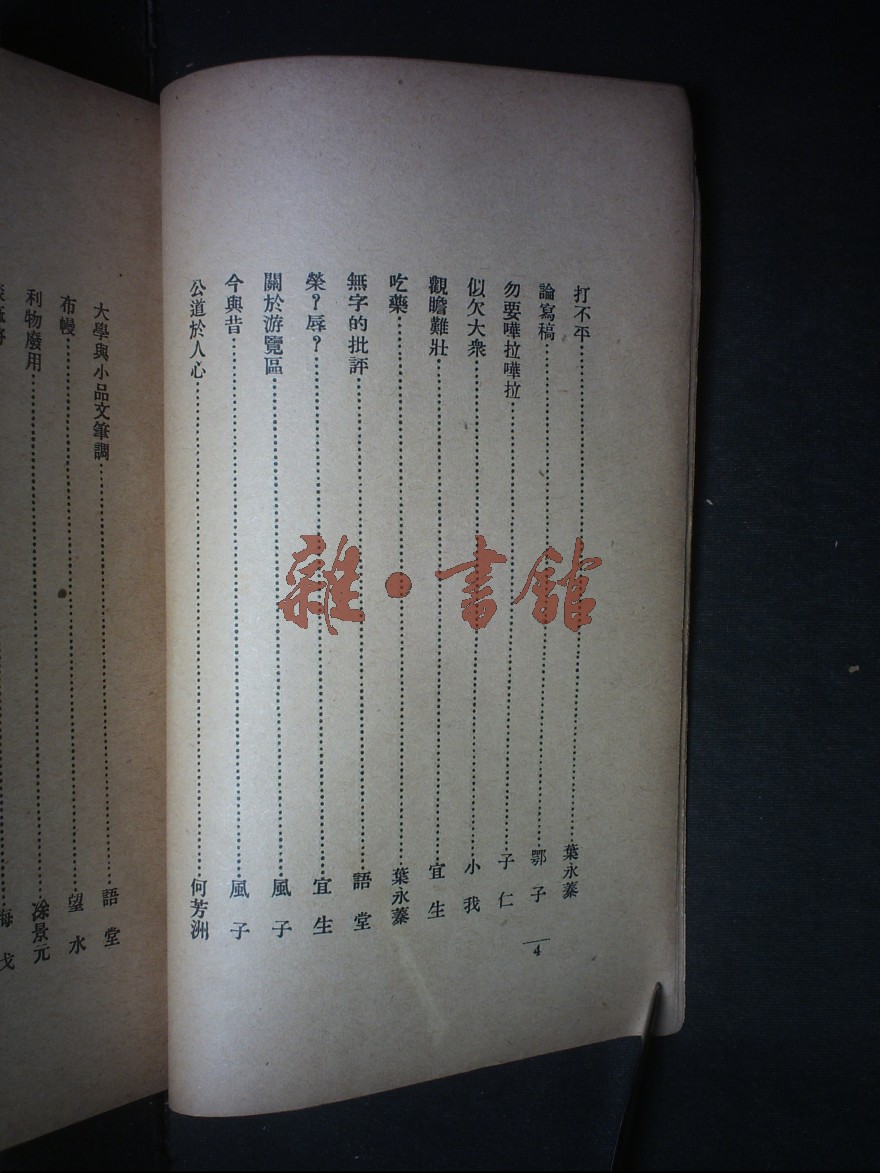 打不平⋯⋯葉永蓁
論寫稿⋯⋯鄂子
勿要嘩拉嘩拉⋯⋯子仁
似欠大衆⋯⋯小我
觀瞻難壯⋯⋯宜生
吃藥⋯⋯葉永蓁
無字的批評⋯⋯語堂
榮？辱？⋯⋯宜生
關於游覽區⋯⋯風子
今與昔⋯⋯風子
公道於人心⋯⋯何芳洲
4
大學與小品文筆調⋯⋯語堂
布幔⋯⋯望水
利物廢用⋯⋯凃景元
海戈
雜·書館